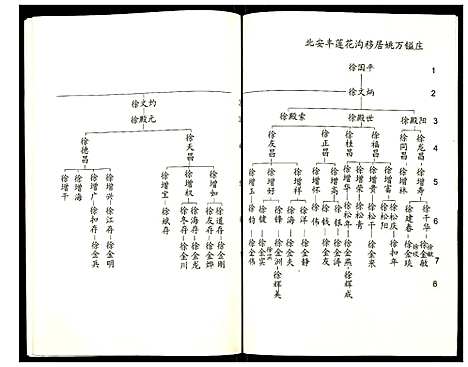 北安丰莲花沟移居姚万镒庄
徐国平 1
徐文炳 2
徐殿阳 徐殿世 徐殿索 3
徐龙昌 徐同昌 徐福昌 徐桂昌 徐正昌 徐友昌 4
徐增寿 徐增林 徐增富 徐增贵 徐增荣 徐增华 徐增高 徐增怀 徐增祥 徐增好 徐增玉 5
徐千华 徐建春 徐松庆 徐松阳 徐松干 徐松青 徐松年 徐银 徐钱 徐伟 徐洋 徐健 6
徐金敏 徐和年 徐金来 徐金燕 徐金涛 徐金友 徐金静 徐金夫 徐金洲 徐金宾 徐金伟 7
徐辉成 徐辉美 8
徐文灼
徐殿元
徐天昌 徐德昌
徐增加 徐增权 徐增宝 徐增兴 徐增广 徐增海 徐增干
徐道存 徐友存 徐海存 徐冬存 徐斌存 徐江存 徐和存
徐金刚 徐金烨 徐金龙 徐金川 徐金明 徐金兵